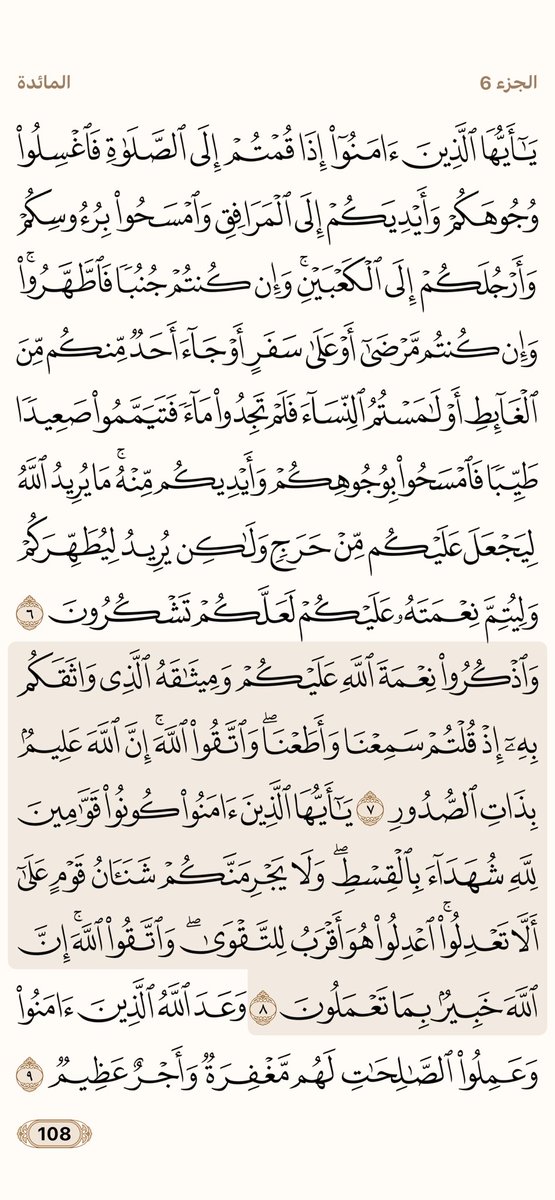 الجزء 6
المائدة
يَٰٓأَيُّهَا ٱلَّذِينَ ءَامَنُوٓاْ إِذَا قُمۡتُمۡ إِلَى ٱلصَّلَوٰةِ فَٱغۡسِلُواْ
وُجُوهَكُمۡ وَأَيۡدِيَكُمۡ إِلَى ٱلۡمَرَافِقِ وَٱمۡسَحُواْ بِرُءُوسِكُمۡ
وَأَرۡجُلَكُمۡ إِلَى ٱلۡكَعۡبَيۡنِۚ وَإِن كُنتُمۡ جُنُبٗا فَٱطَّهَّرُواْۚ
وَإِن كُنتُم مَّرۡضَىٰٓ أَوۡ عَلَىٰ سَفَرٍ أَوۡ جَآءَ أَحَدٞ مِّنكُم مِّنَ
ٱلۡغَآئِطِ أَوۡ لَٰمَسۡتُمُ ٱلنِّسَآءَ فَلَمۡ تَجِدُواْ مَآءٗ فَتَيَمَّمُواْ صَعِيدٗا
طَيِّبٗا فَٱمۡسَحُواْ بِوُجُوهِكُمۡ وَأَيۡدِيكُم مِّنۡهُۚ مَا يُرِيدُ ٱللَّهُ
لِيَجۡعَلَ عَلَيۡكُم مِّنۡ حَرَجٖ وَلَٰكِن يُرِيدُ لِيُطَهِّرَكُمۡ
وَلِيُتِمَّ نِعۡمَتَهُۥ عَلَيۡكُمۡ لَعَلَّكُمۡ تَشۡكُرُونَ ٦
وَٱذۡكُرُواْ نِعۡمَةَ ٱللَّهِ عَلَيۡكُمۡ وَمِيثَٰقَهُ ٱلَّذِي وَاثَقَكُم
بِهِۦٓ إِذۡ قُلۡتُمۡ سَمِعۡنَا وَأَطَعۡنَاۖ وَٱتَّقُواْ ٱللَّهَۚ إِنَّ ٱللَّهَ عَلِيمُۢ
بِذَاتِ ٱلصُّدُورِ ٧ يَٰٓأَيُّهَا ٱلَّذِينَ ءَامَنُواْ كُونُواْ قَوَّٰمِينَ
لِلَّهِ شُهَدَآءَ بِٱلۡقِسۡطِۖ وَلَا يَجۡرِمَنَّكُمۡ شَنَـَٔانُ قَوۡمٍ عَلَىٰٓ
أَلَّا تَعۡدِلُواْۚ ٱعۡدِلُواْ هُوَ أَقۡرَبُ لِلتَّقۡوَىٰۖ وَٱتَّقُواْ ٱللَّهَۚ إِنَّ
ٱللَّهَ خَبِيرُۢ بِمَا تَعۡمَلُونَ ٨ وَعَدَ ٱللَّهُ ٱلَّذِينَ ءَامَنُواْ
وَعَمِلُواْ ٱلصَّٰلِحَٰتِ لَهُم مَّغۡفِرَةٞ وَأَجۡرٌ عَظِيمٞ ٩
108